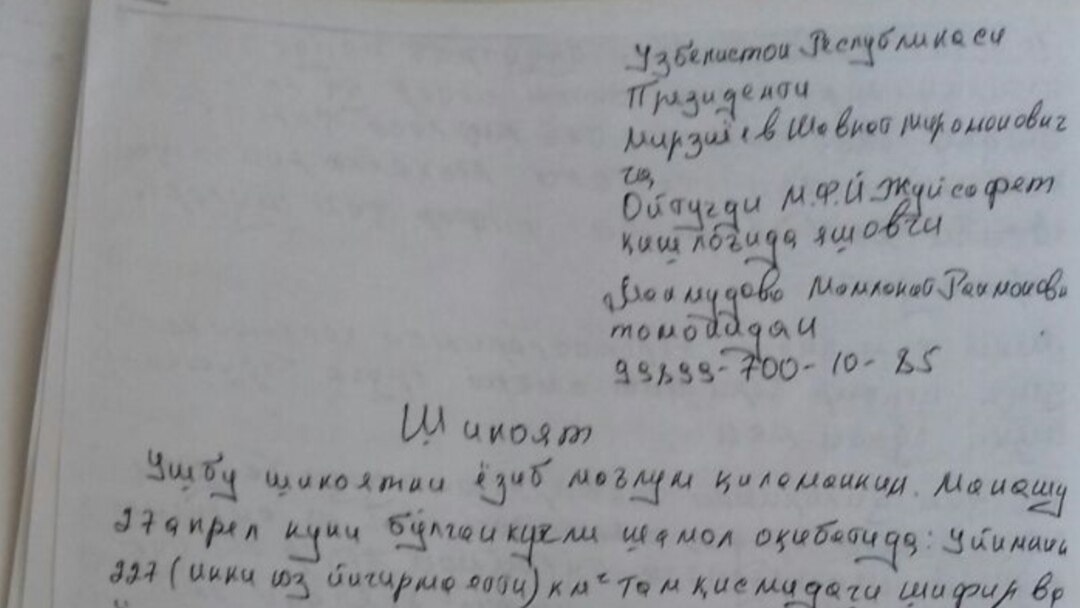 Узбекистон Республикаси
Президенти
Мирзиёев Шавкат Миромонович
га,
Ойтугди М.Ф.Й Жуйсофет
қишлоғида яшовчи
Маймудова Момлокат Раимоновa
томонидан
99899-700-10-85
Шикоят
Ушбу шикоятни ёзиб маълум қиломанким. Манашу
27 апрел куни бўлган кучли шамол оқибатида: Уйимни
227 (икки юз йигирма етти) км² том қисмидаги шифир ва